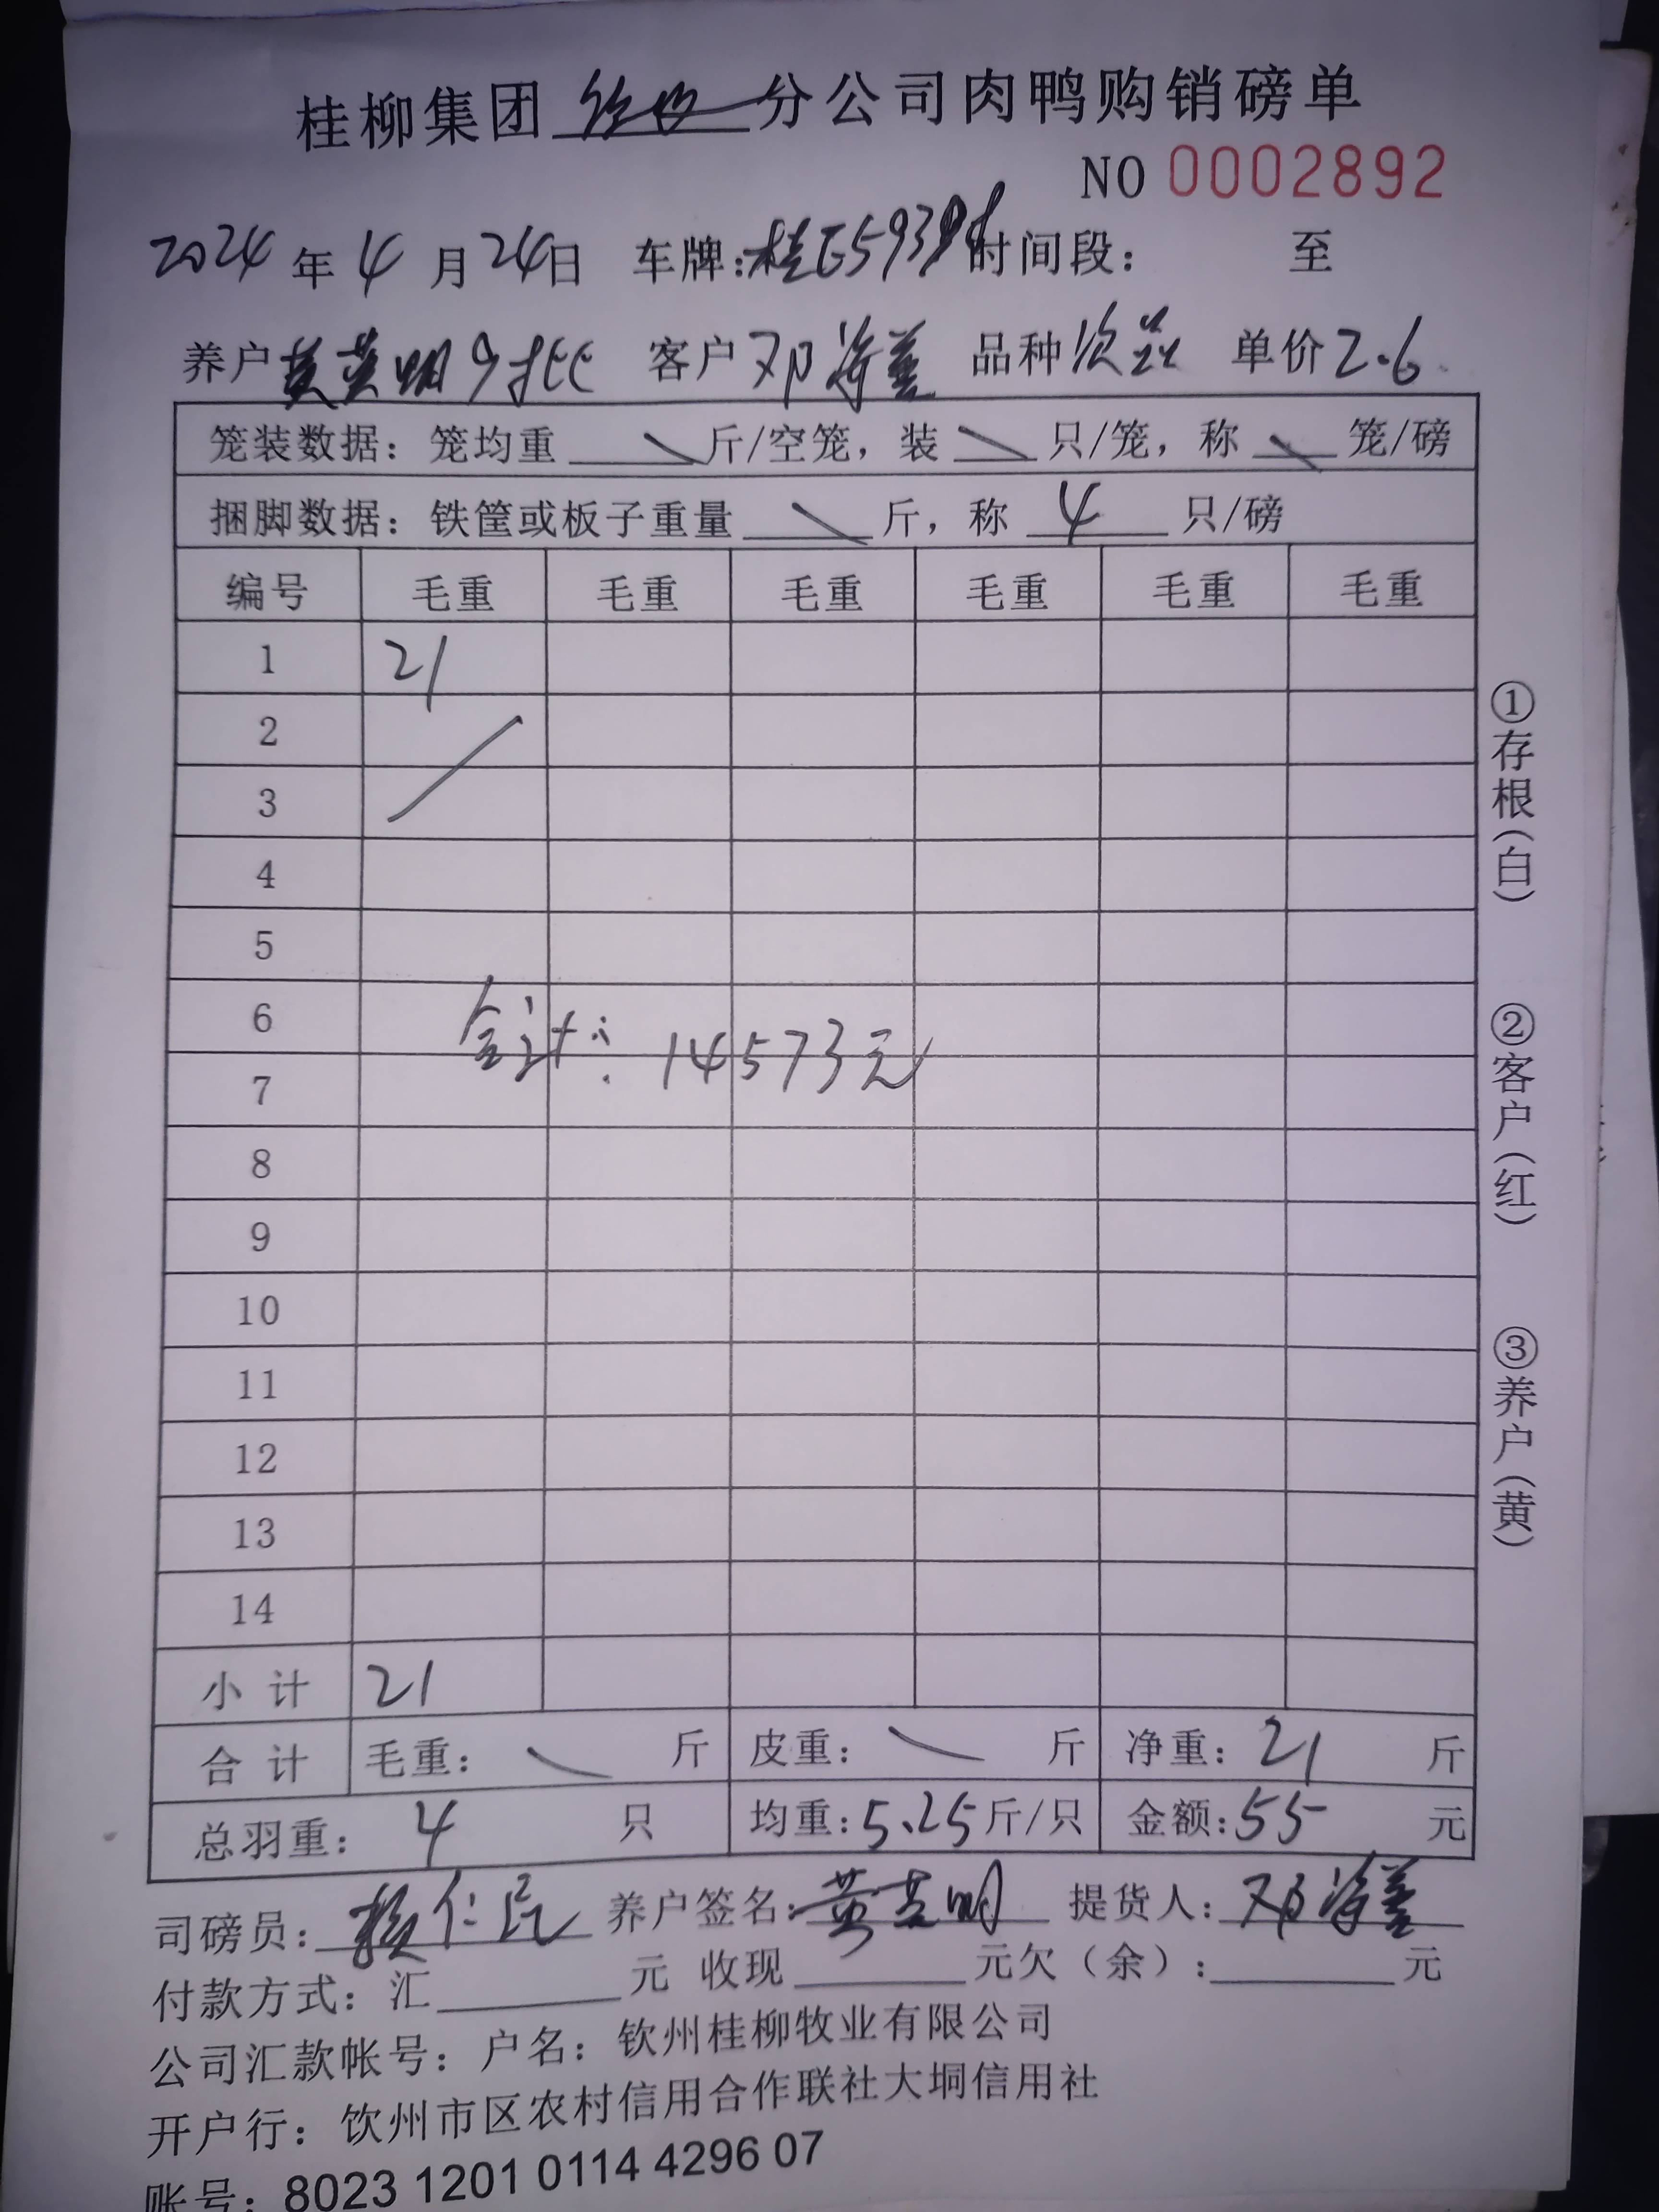 桂柳集团 分公司肉鸭购销磅单
NO 0002892
2024年4月24日 车牌:桂E5939 时间段: 至
养户 黄英明 客户 邓海益 品种 次 单价 2.6
笼装数据: 笼均重 斤/空笼, 装 只/笼, 称 笼/磅
捆脚数据: 铁筐或板子重量 斤, 称 4 只/磅
编号 毛重 毛重 毛重 毛重 毛重 毛重
1 21
2
3
4
5
6
合计: 14573元
7
8
9
10
11
12
13
14
小计 21
合计 毛重: 斤 皮重: 斤 净重: 21 斤
总羽重: 4 只 均重: 5.25斤/只 金额: 55 元
司磅员: 仁民 养户签名: 黄英明 提货人: 邓海益
付款方式: 汇 元 收现 元欠(余): 元
公司汇款帐号: 户名: 钦州桂柳牧业有限公司
开户行: 钦州市区农村信用合作联社大垌信用社
账号: 8023 1201 0114 4296 07
①存根(白)
②客户(红)
③养户(黄)